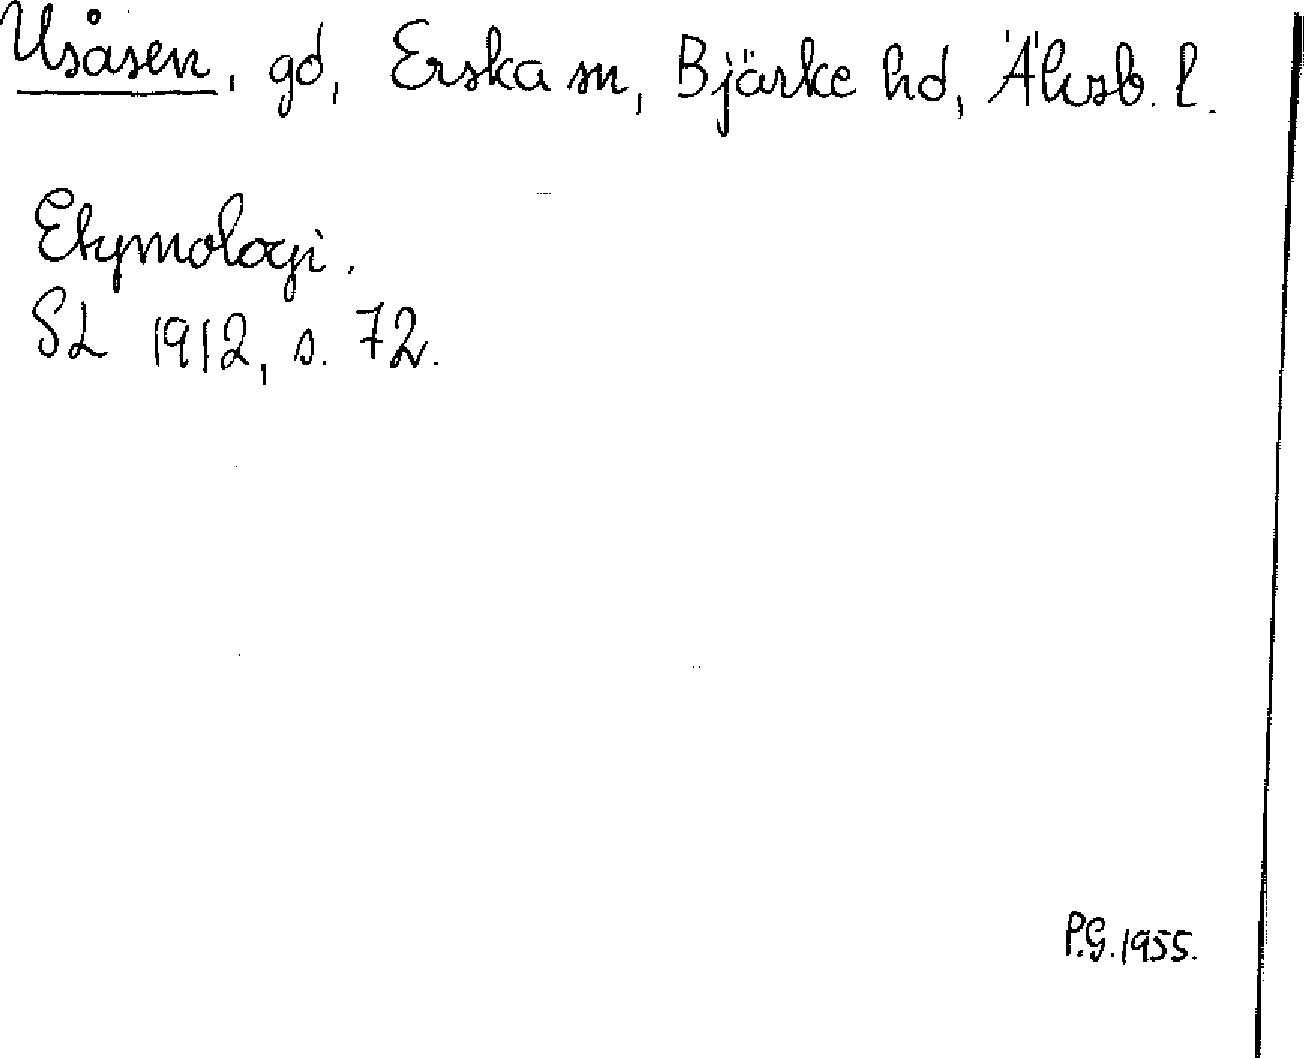 Usåsen, gd, Erska sn, Bjärke hd, Älvsb. l.
Etymologi.
SL 1912, s. 72.
P.G. 1955.